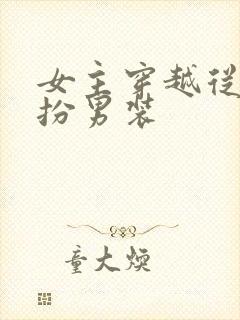 女主穿越從
扮男裝
童大煥